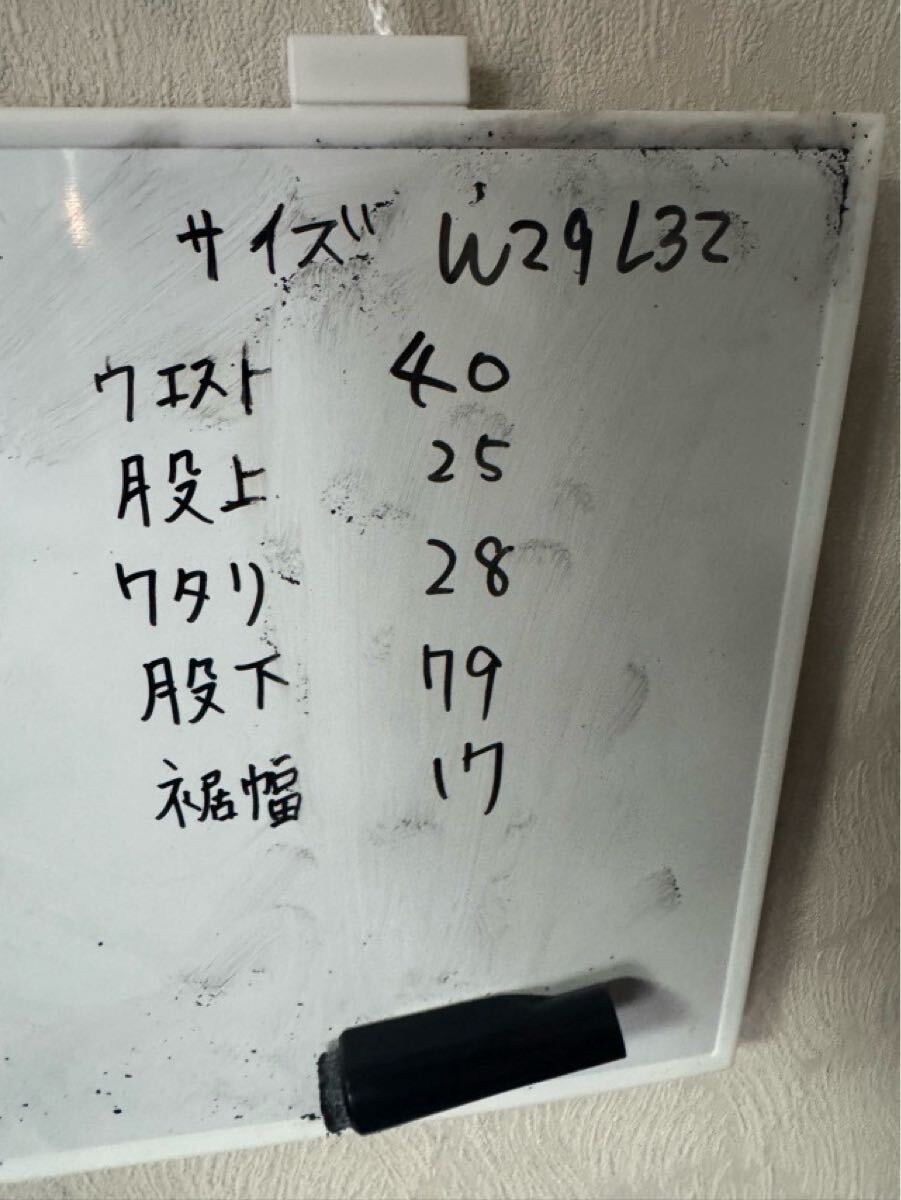 サイズ W29 L32
ウエスト 40
股上 25
ワタリ 28
股下 79
裾幅 17